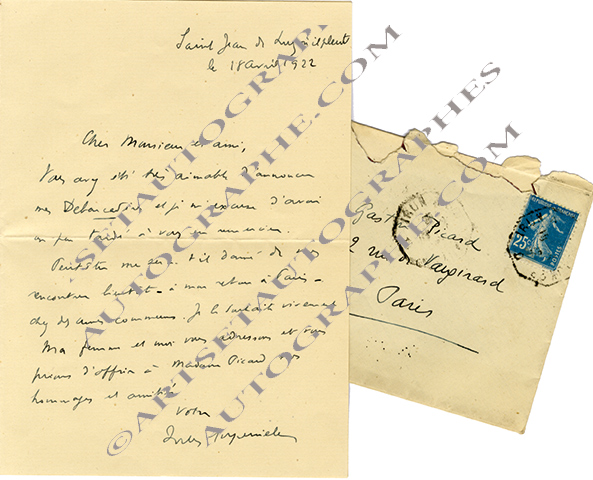 Saint Jean de Luz
le 18 avril 1922
Cher Monsieur et ami,
Vous avez été très aimable d'annoncer
mes et je m'excuse d'avoir
un peu tardé à vous en remercier.
Peut-être me sera-t-il donné de vous
rencontrer bientôt - à mon retour à Paris -
chez des amis communs. Je le souhaite vivement
Ma femme et moi vous adressons et vous
prions d'offrir à Madame Picard nos
hommages et amitiés
Votre
Gaston Picard
2 rue de Vaugirard
Paris
25c
POSTES
©ARTSETAUTOGRAPHES.COM
AUTOGRAPHE.COM